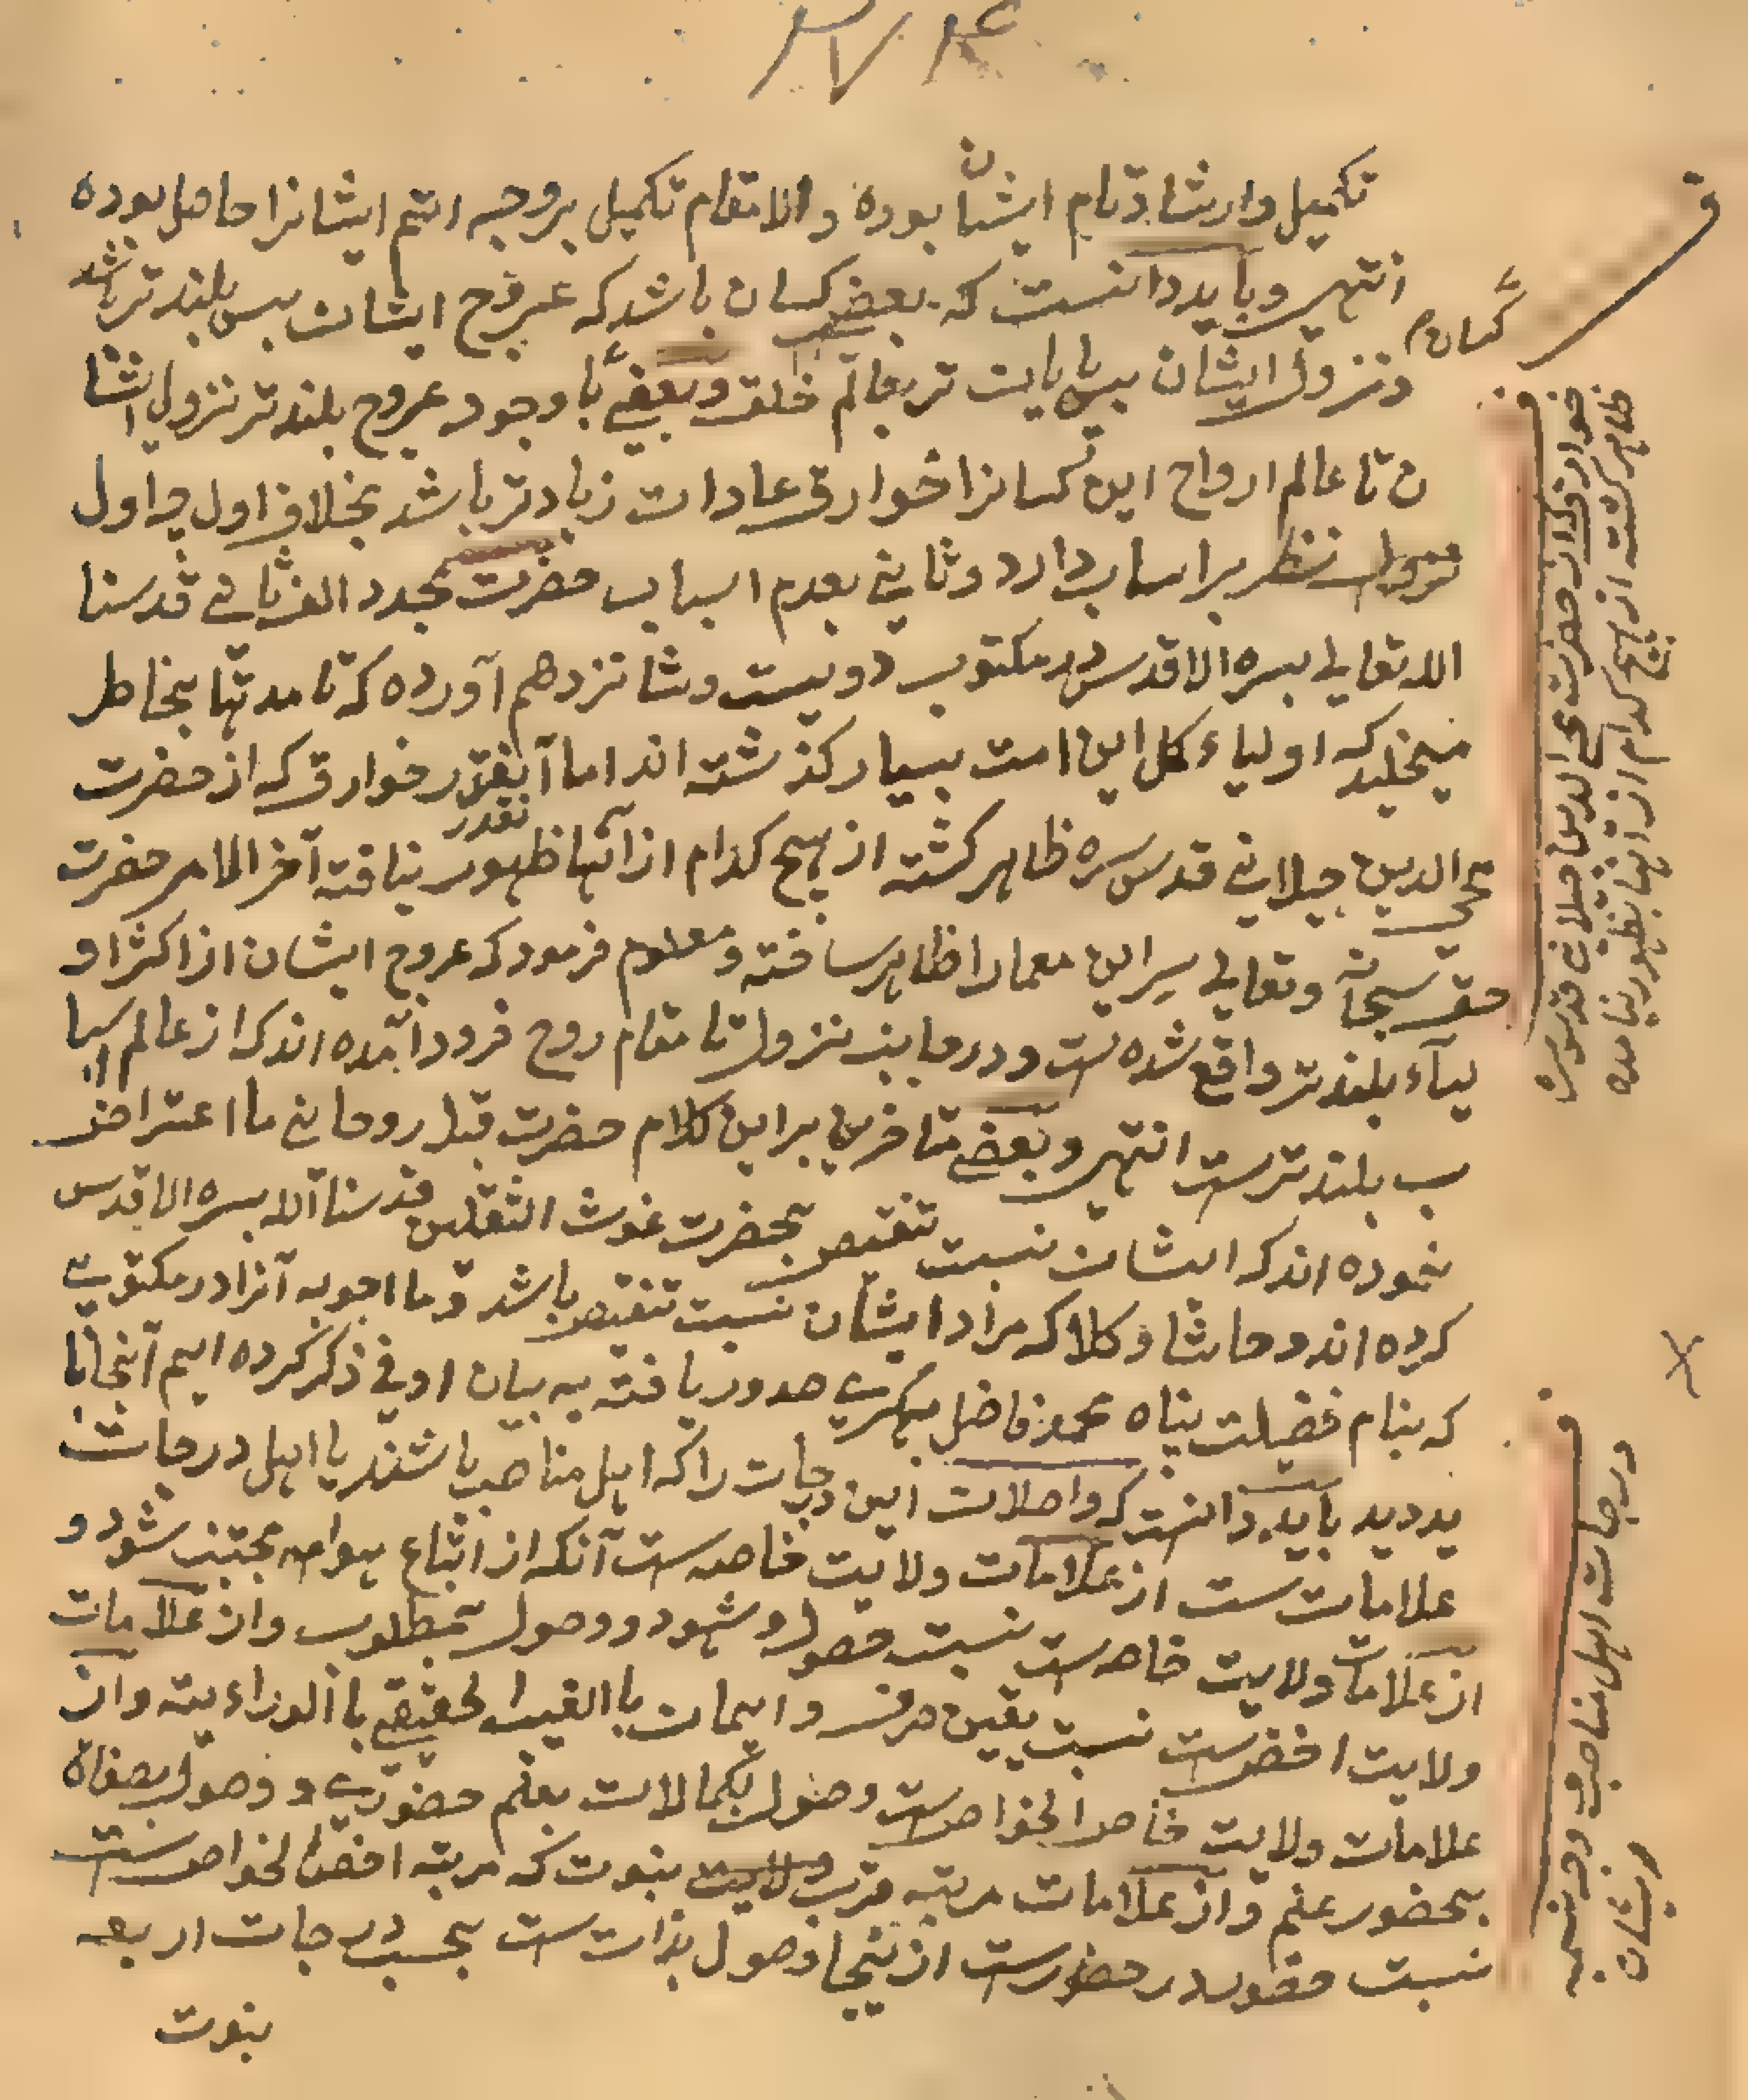 تکمیل و ارشاد تام ایشان بوده و الا مقام تکمیل بر وجه اتم ایشانرا حاصل بوده
انتهی و باید دانست که بعضی کسان باشد که عروج ایشان بس بلند تر باشد
و نزول ایشان بس پایان تر بعالم خلق و بعضی با وجود عروج بلند تر نزول ایشا
ن تا عالم ارواح این کسانرا خوارق عادات زیاد تر باشد بخلاف اول چه اول
نظر بر اسباب دارد و ثانی بعدم اسباب حضرت مجدد الف ثانی قدسنا
الله تعالی بسره الاقدس در مکتوب دویست و شانزدهم آورده که تا مدتها بخاطر
میخلید که اولیاء کل این امت بسیار گذشته اند اما آنقدر خوارق که از حضرت
محی الدین جیلانی قدس سره ظاهر گشته از هیچ کدام از آنها ظهور نیافته آخر الامر حضرت
حق سبحانه و تعالی سر این معما را ظاهر ساخته و معلوم فرمود که عروج ایشان از اکثر او
لیاء بلند تر واقع شده است و در جانب نزول تا مقام روح فرود آمده اند که از عالم اسبا
ب بلند ترست انتهی و بعضی متاخرین بر این کلام حضرت قبله روحانی ما اعتراض
نموده اند که ایشان نسبت تنقیص بحضرت غوث الثقلین قدسنا الله بسره الاقدس
کرده اند و حاشا و کلا که مراد ایشان نسبت تنقیص باشد و ما اجوبه آنرا در مکتوبی
که بنام فضیلت پناه محمد فاضل صدور یافته به بیان اوفی ذکر کرده ایم آنجا با
ید دید باید دانست که واصلان این درجات را که اهل مناصب باشند یا اهل درجات
علامات ست از علامات ولایت خاصه ست آنکه از اتباع هوا مجتنب شود و
از علامات ولایت خاصه ست نسبت حصول و شهود و وصول بمطلوب و از علامات
ولایت اخص ست نسبت یقین صرف و ایمان با الغیب الحقیقی با الورائیته و از
علامات ولایت خاص الخواص ست وصول بکمالات بعلم حضوری و وصول بصفات
بحضور علم و از علامات مرتبه قرب ولایت نبوت که مرتبه اخص الخواص ست
نسبت حضور در حضورست از نیجا وصول بذات ست بحسب درجات اربعه
نبوت
ف
کسان
ف
خوارق که از حضرت محی الدین جیلانی قدس سره
ظاهر گشته از هیچ کدام از آنها بظهور نیامده
ف
درجات اهل مناصب